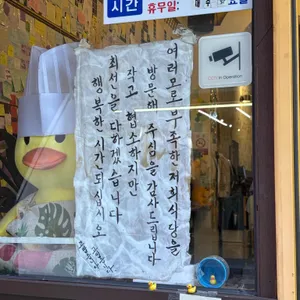 시간
휴무일:
요일
CCTV in Operation
여러모로 부족한 저희 식당을
방문해 주심을 감사드립니다
작고 협소하지만
최선을 다하겠습니다
행복한 시간 되십시오